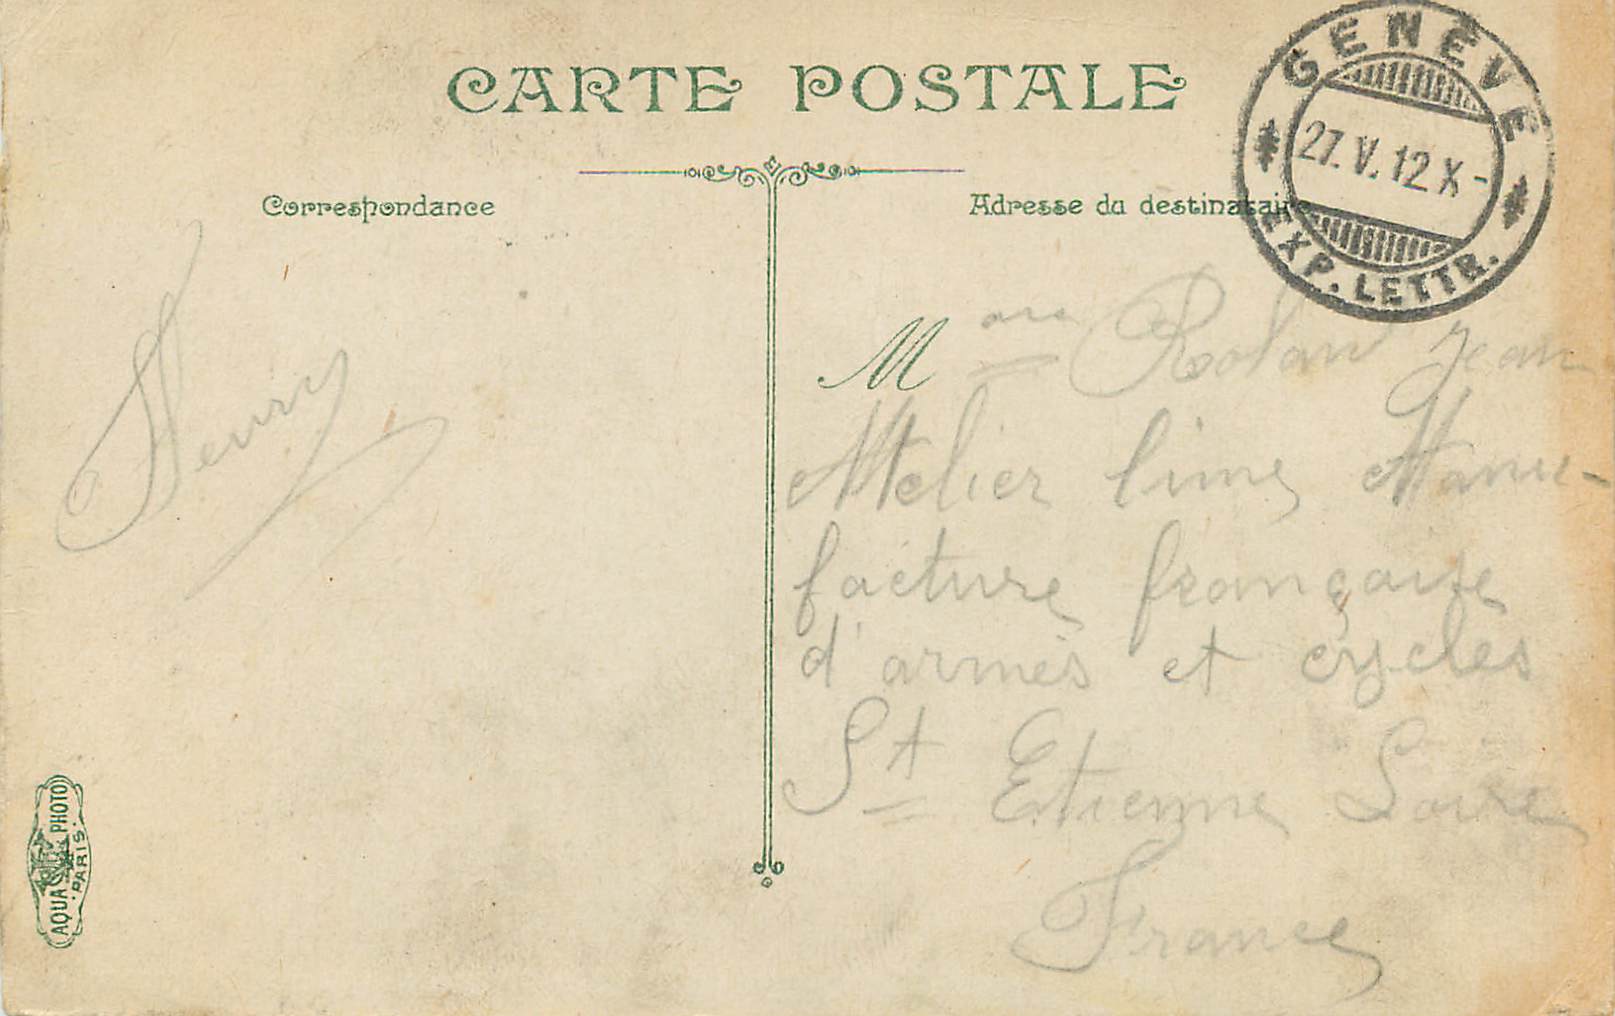 CARTE POSTALE
Correspondance
Adresse du destinataire
GENÈVE
27.V.12 X-
EXP. LETTR.
Henry
M Rolan Jean
Atelier lime Manu-
facture française
d'armes et cycles
St Etienne Loire
France
AQUA PHOTO
PARIS.